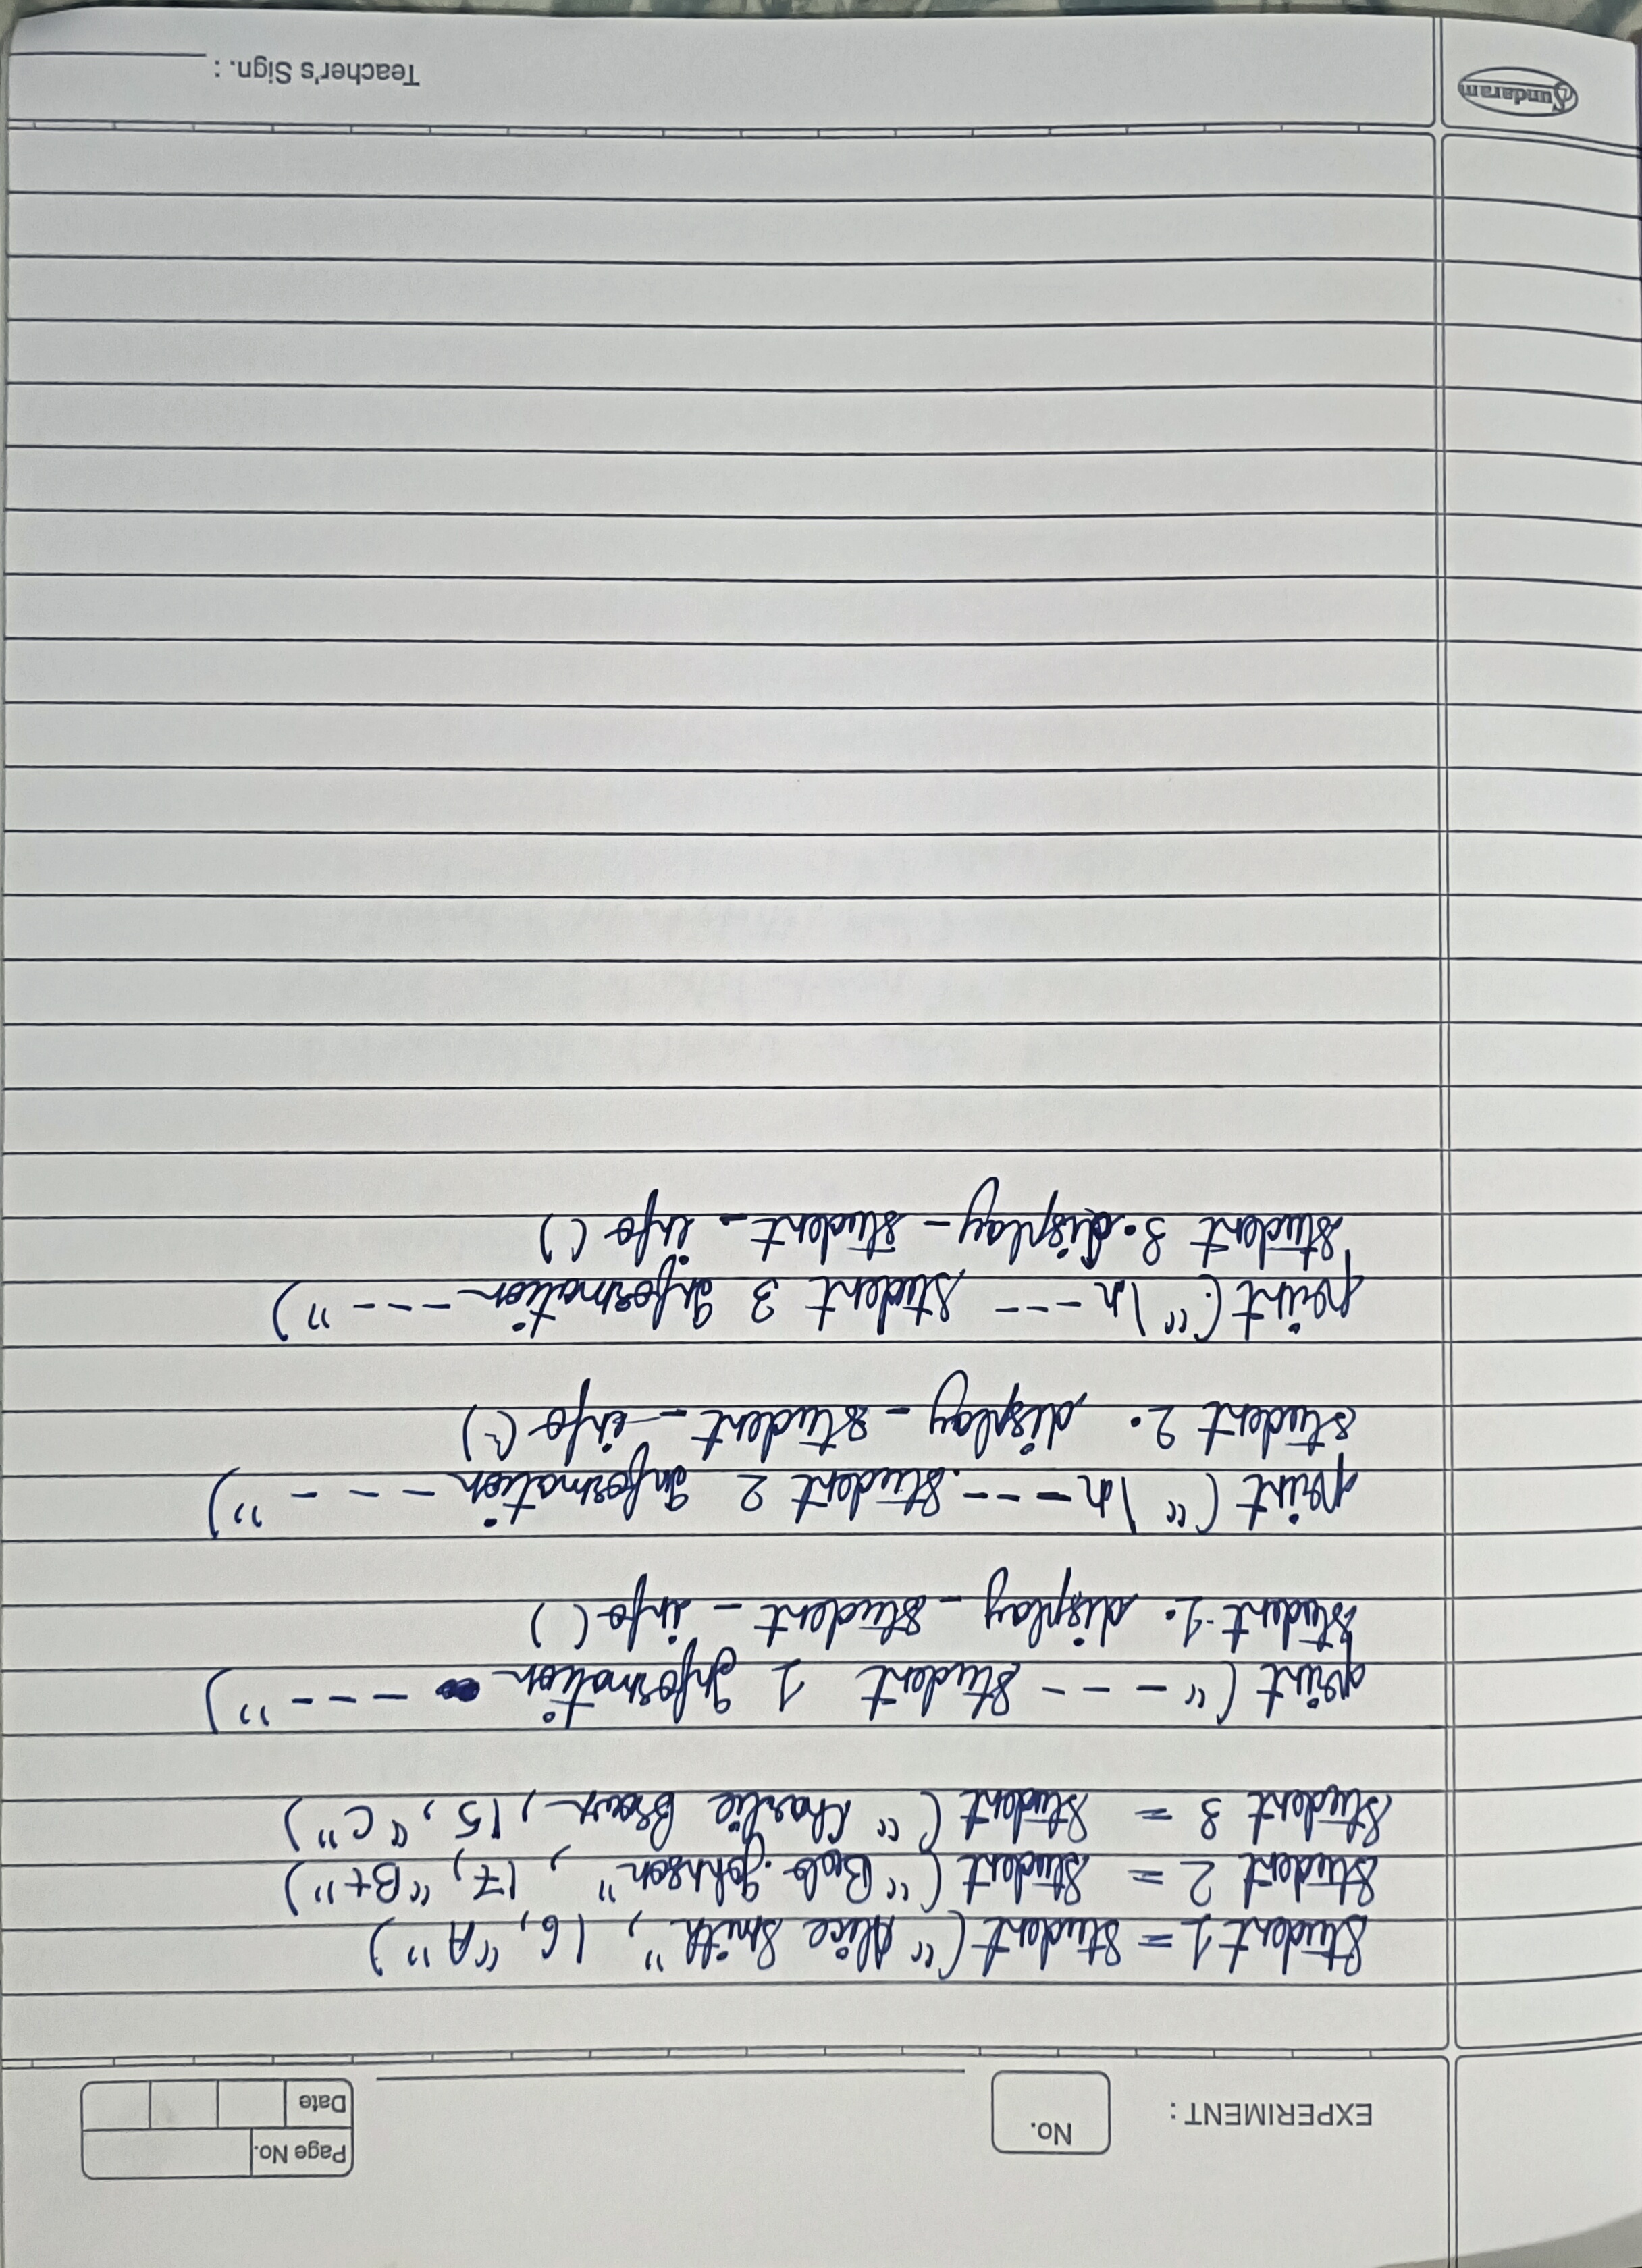 EXPERIMENT :
No.
Page No.
Date
Student 1 = Student ("Alice Smith", 16, "A")
Student 2 = Student ("Bob Johnson", 17, "B+")
Student 3 = Student ("Charlie Brown, 15, "C")
print ("--- Student 1 Information ---")
student 1. display_student_info()
print ("\n--- Student 2 Information ---")
student 2. display_student_info()
print ("\n--- Student 3 Information ---")
student 3. display_student_info()
Sundaram
Teacher's Sign. :